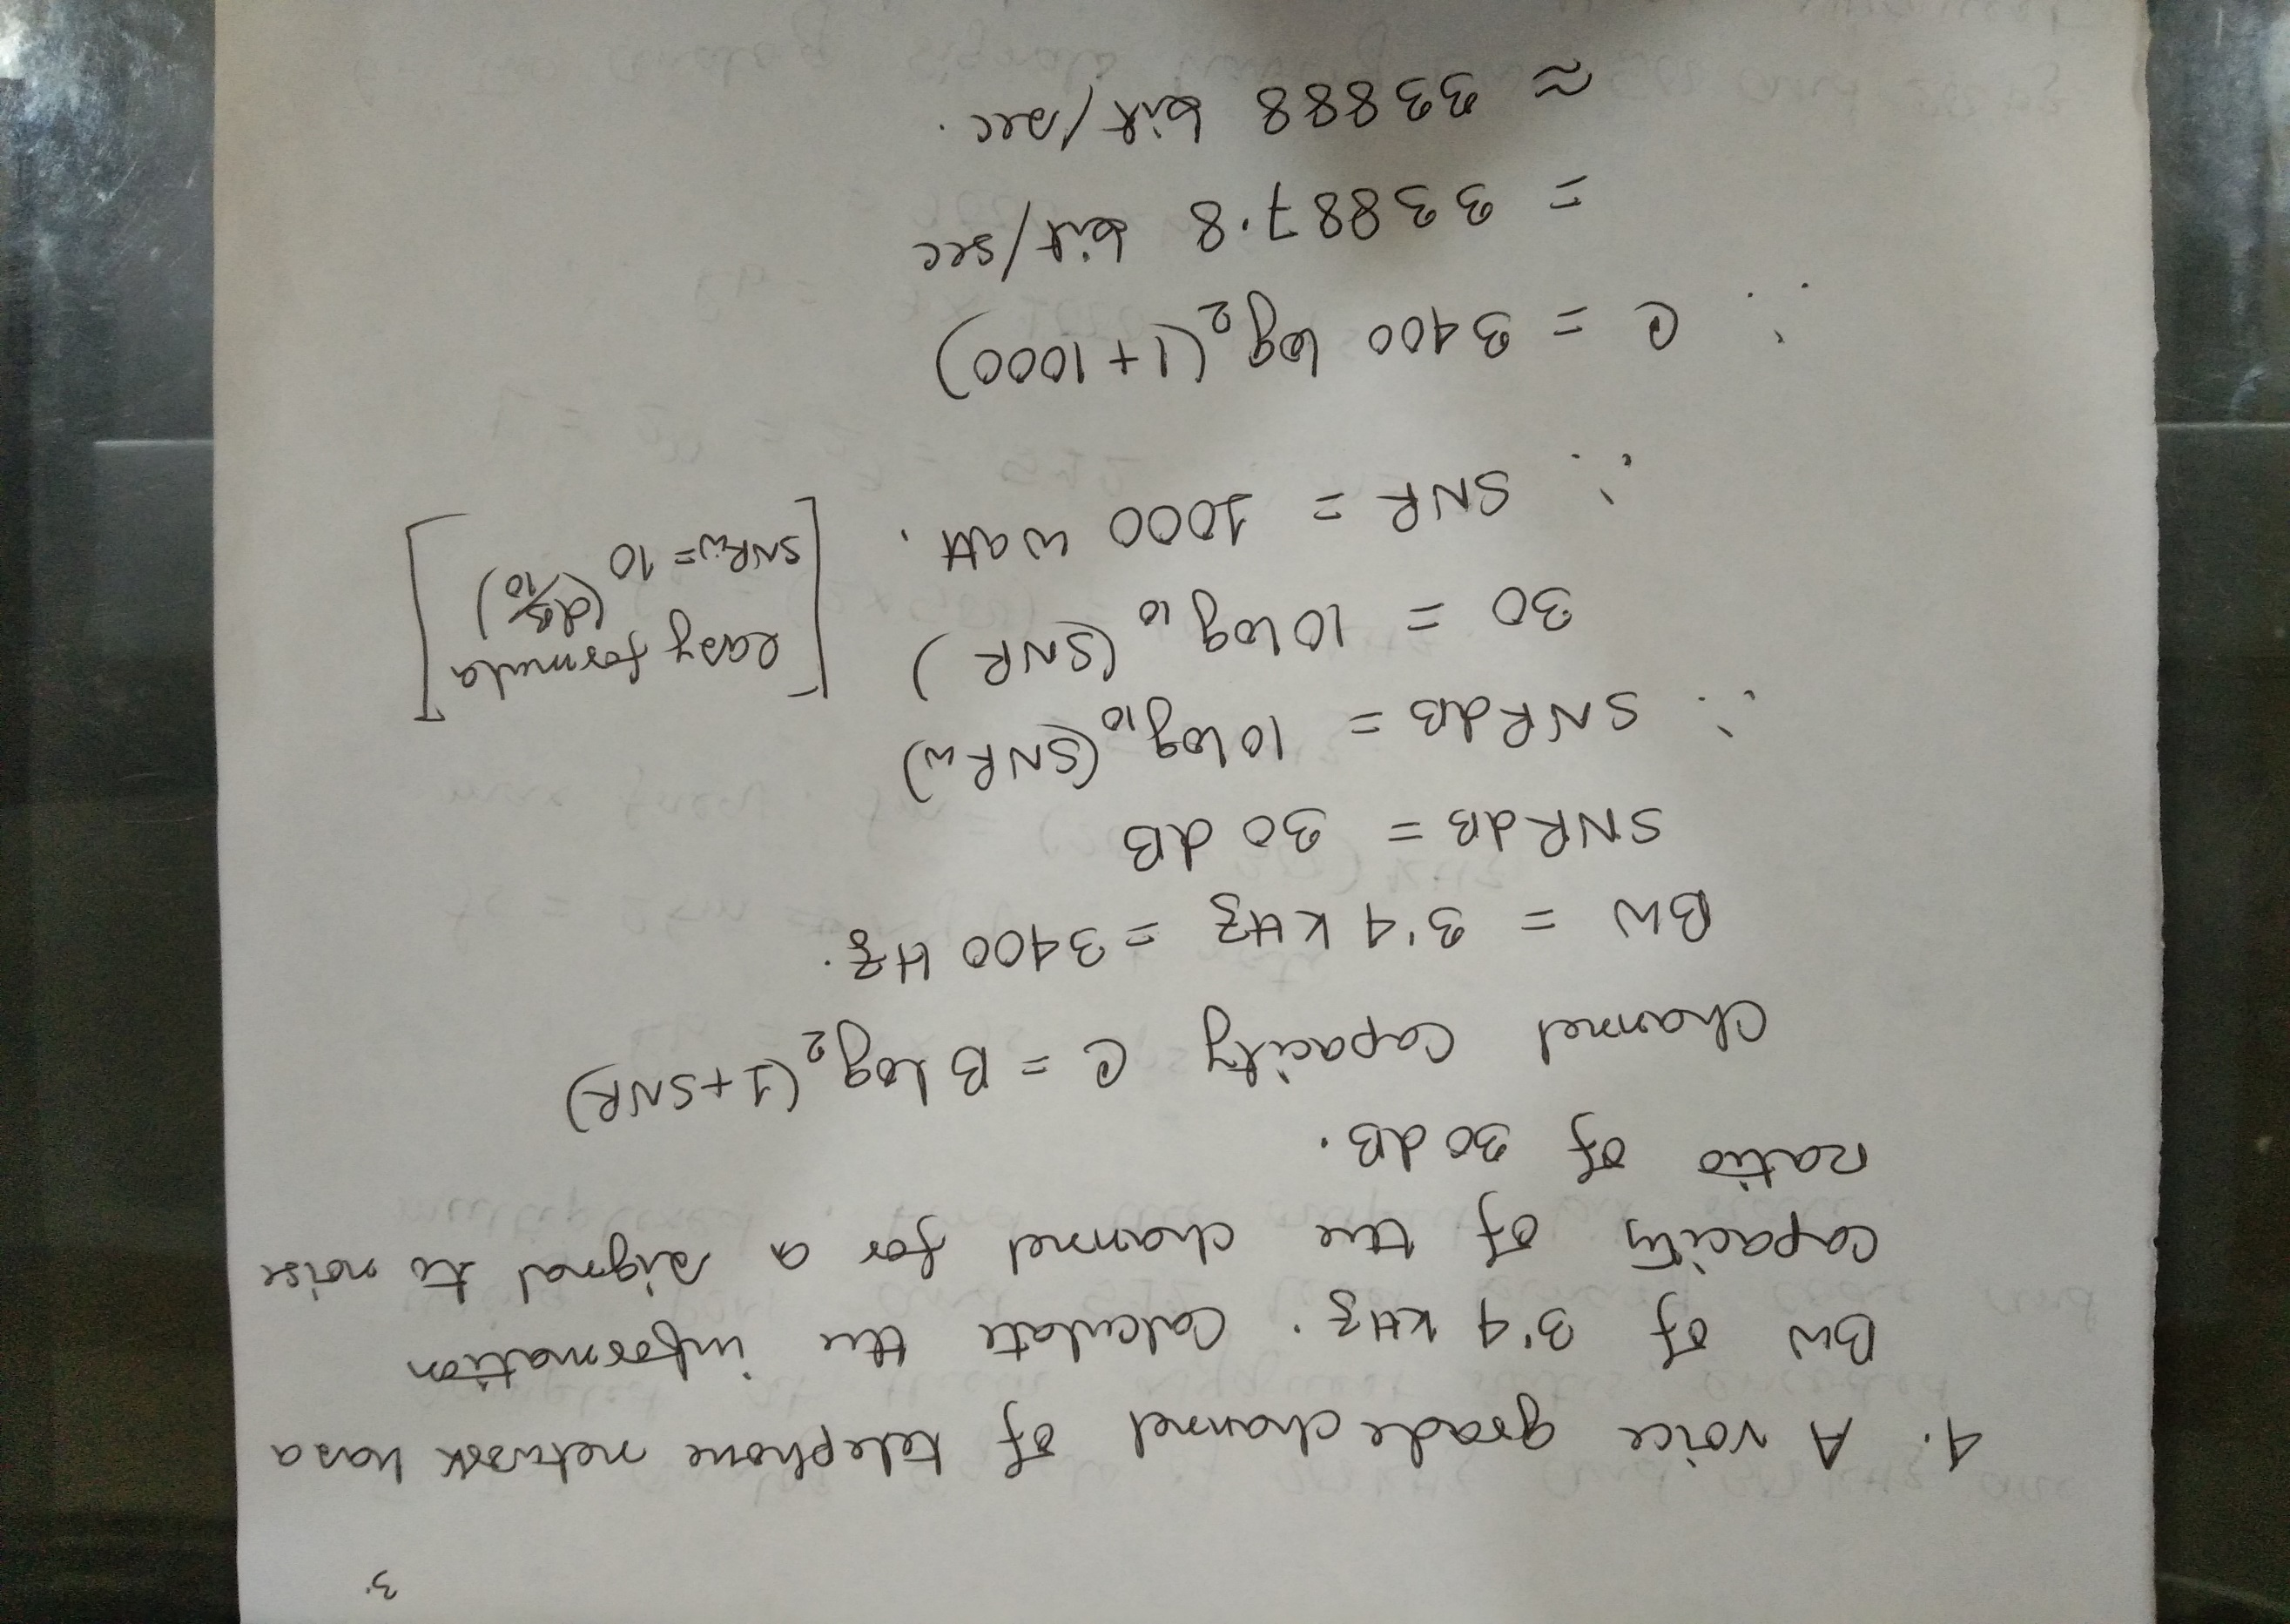 3.
4. A voice grade channel of telephone network has a
BW of 3.4 KHz. Calculate the information
capacity of the channel for a signal to noise
ratio of 30 dB.
Channel Capacity C = B log₂ (1+SNR)
BW = 3.4 KHz = 3400 Hz.
SNR dB = 30 dB
∴ SNR dB = 10 log₁₀ (SNR w)
30 = 10 log₁₀ (SNR) [easy formula
∴ SNR = 1000 watt. SNR w = 10^(dB/10)]
∴ C = 3400 log₂ (1+1000)
= 33887.8 bit/sec
≈ 33888 bit/sec.